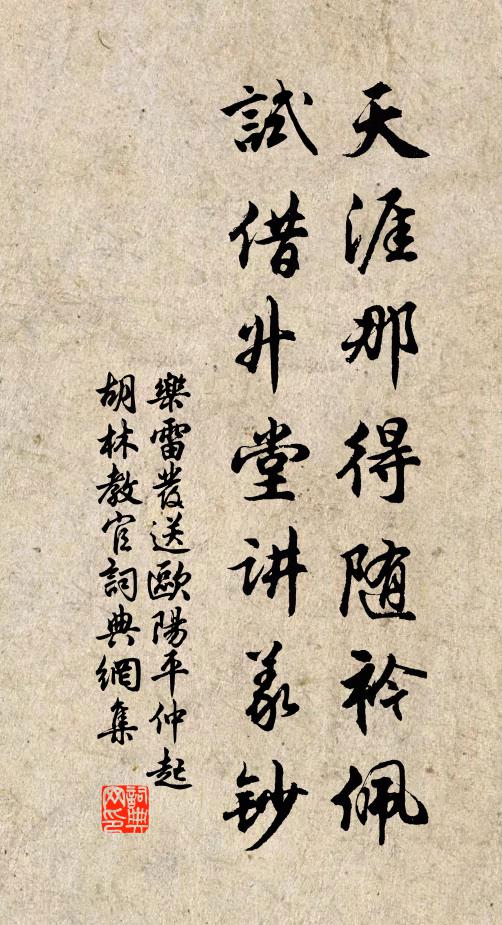 天涯那得随衿佩
試借升堂讲義鈔
樂雷發送歐陽平仲起
胡林教官詞典網集
詞典
网印